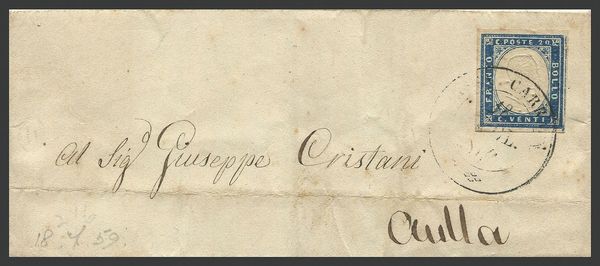 C. POSTE 20
FRANCO
BOLLO
C. VENTI
CARR
Al Sigr Giuseppe Cristani
Aulla
18 59